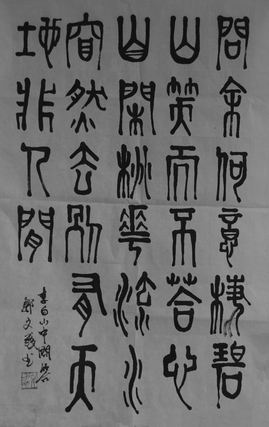 問余何意棲碧
山笑而不荅心
自閑桃華流水
窅然去別有天
地非人閒
李白山中問答
鄭文書